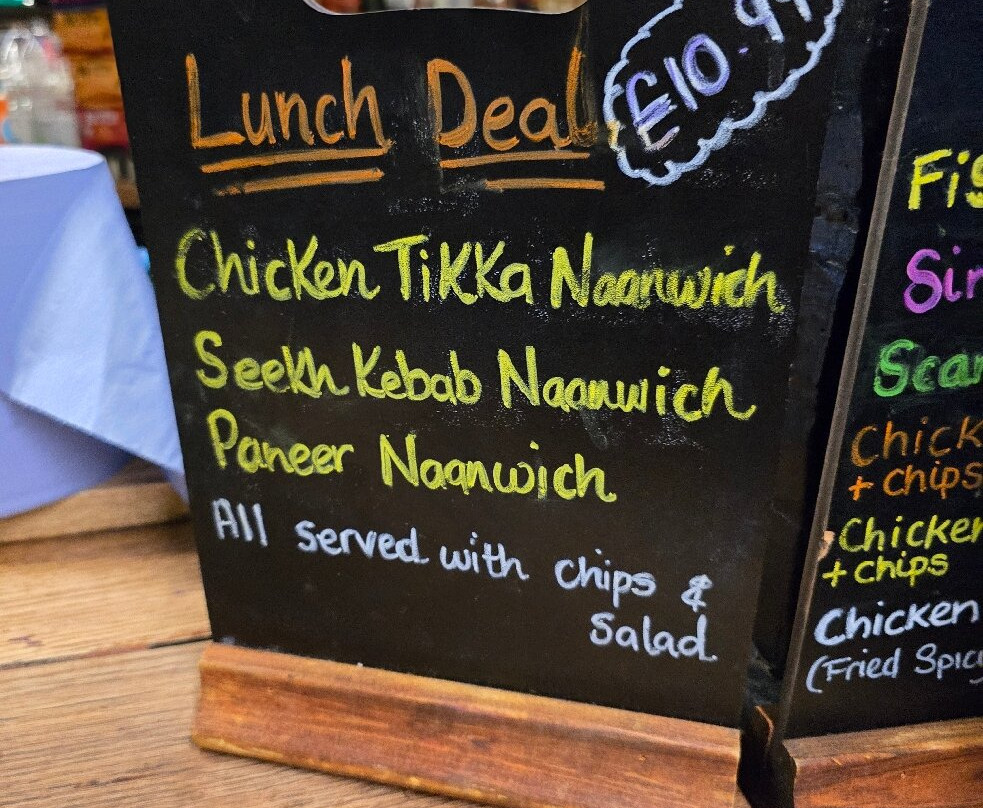 Lunch Deal
Chicken Tikka Naanwich
Seekh Kebab Naanwich
Paneer Naanwich
All served with chips &
Salad
Chick
+ chips
Chicken
+ chips
Chicken
(Fried